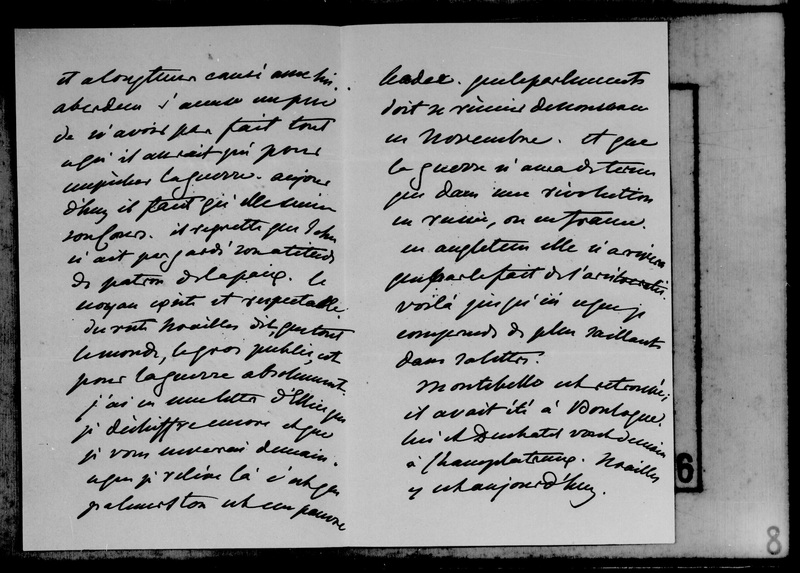 et a longtems causé avec lui.
aberdeen s'accuse un peu
de n'avoir pas fait tout
ce qu'il aurait pu pour
empêcher la guerre. aujour
d'huy il faut qu'elle suive
son cours. il regrette que
n'ait pas gardé son attitude
de patron de la paix. le
noyau existe et respectable
du reste Noailles dit que tout
le monde, le gros public, est
pour la guerre absolument.
j'ai eu une lettre d'Ellice que
je déchiffre encore et que
je vous enverrai demain.
ce que je relève là c'est que
palmerston est un pauvre
leader. que le parlement
doit se réunir de nouveau
en Novembre. et que
la guerre n'aura de terme
que dans une révolution
en russie, ou en france.
en angleterre elle n'arrivera
que par le fait de l'aristocratie.
voilà jusqu'ici ce que je
comprends de plus saillant
dans sa lettre.
Montebello est retrouvé,
il avait été à Boulogne.
lui et Duchatel vont demain
à Champlatreux. Noailles
y est aujourd'huy.
6
8